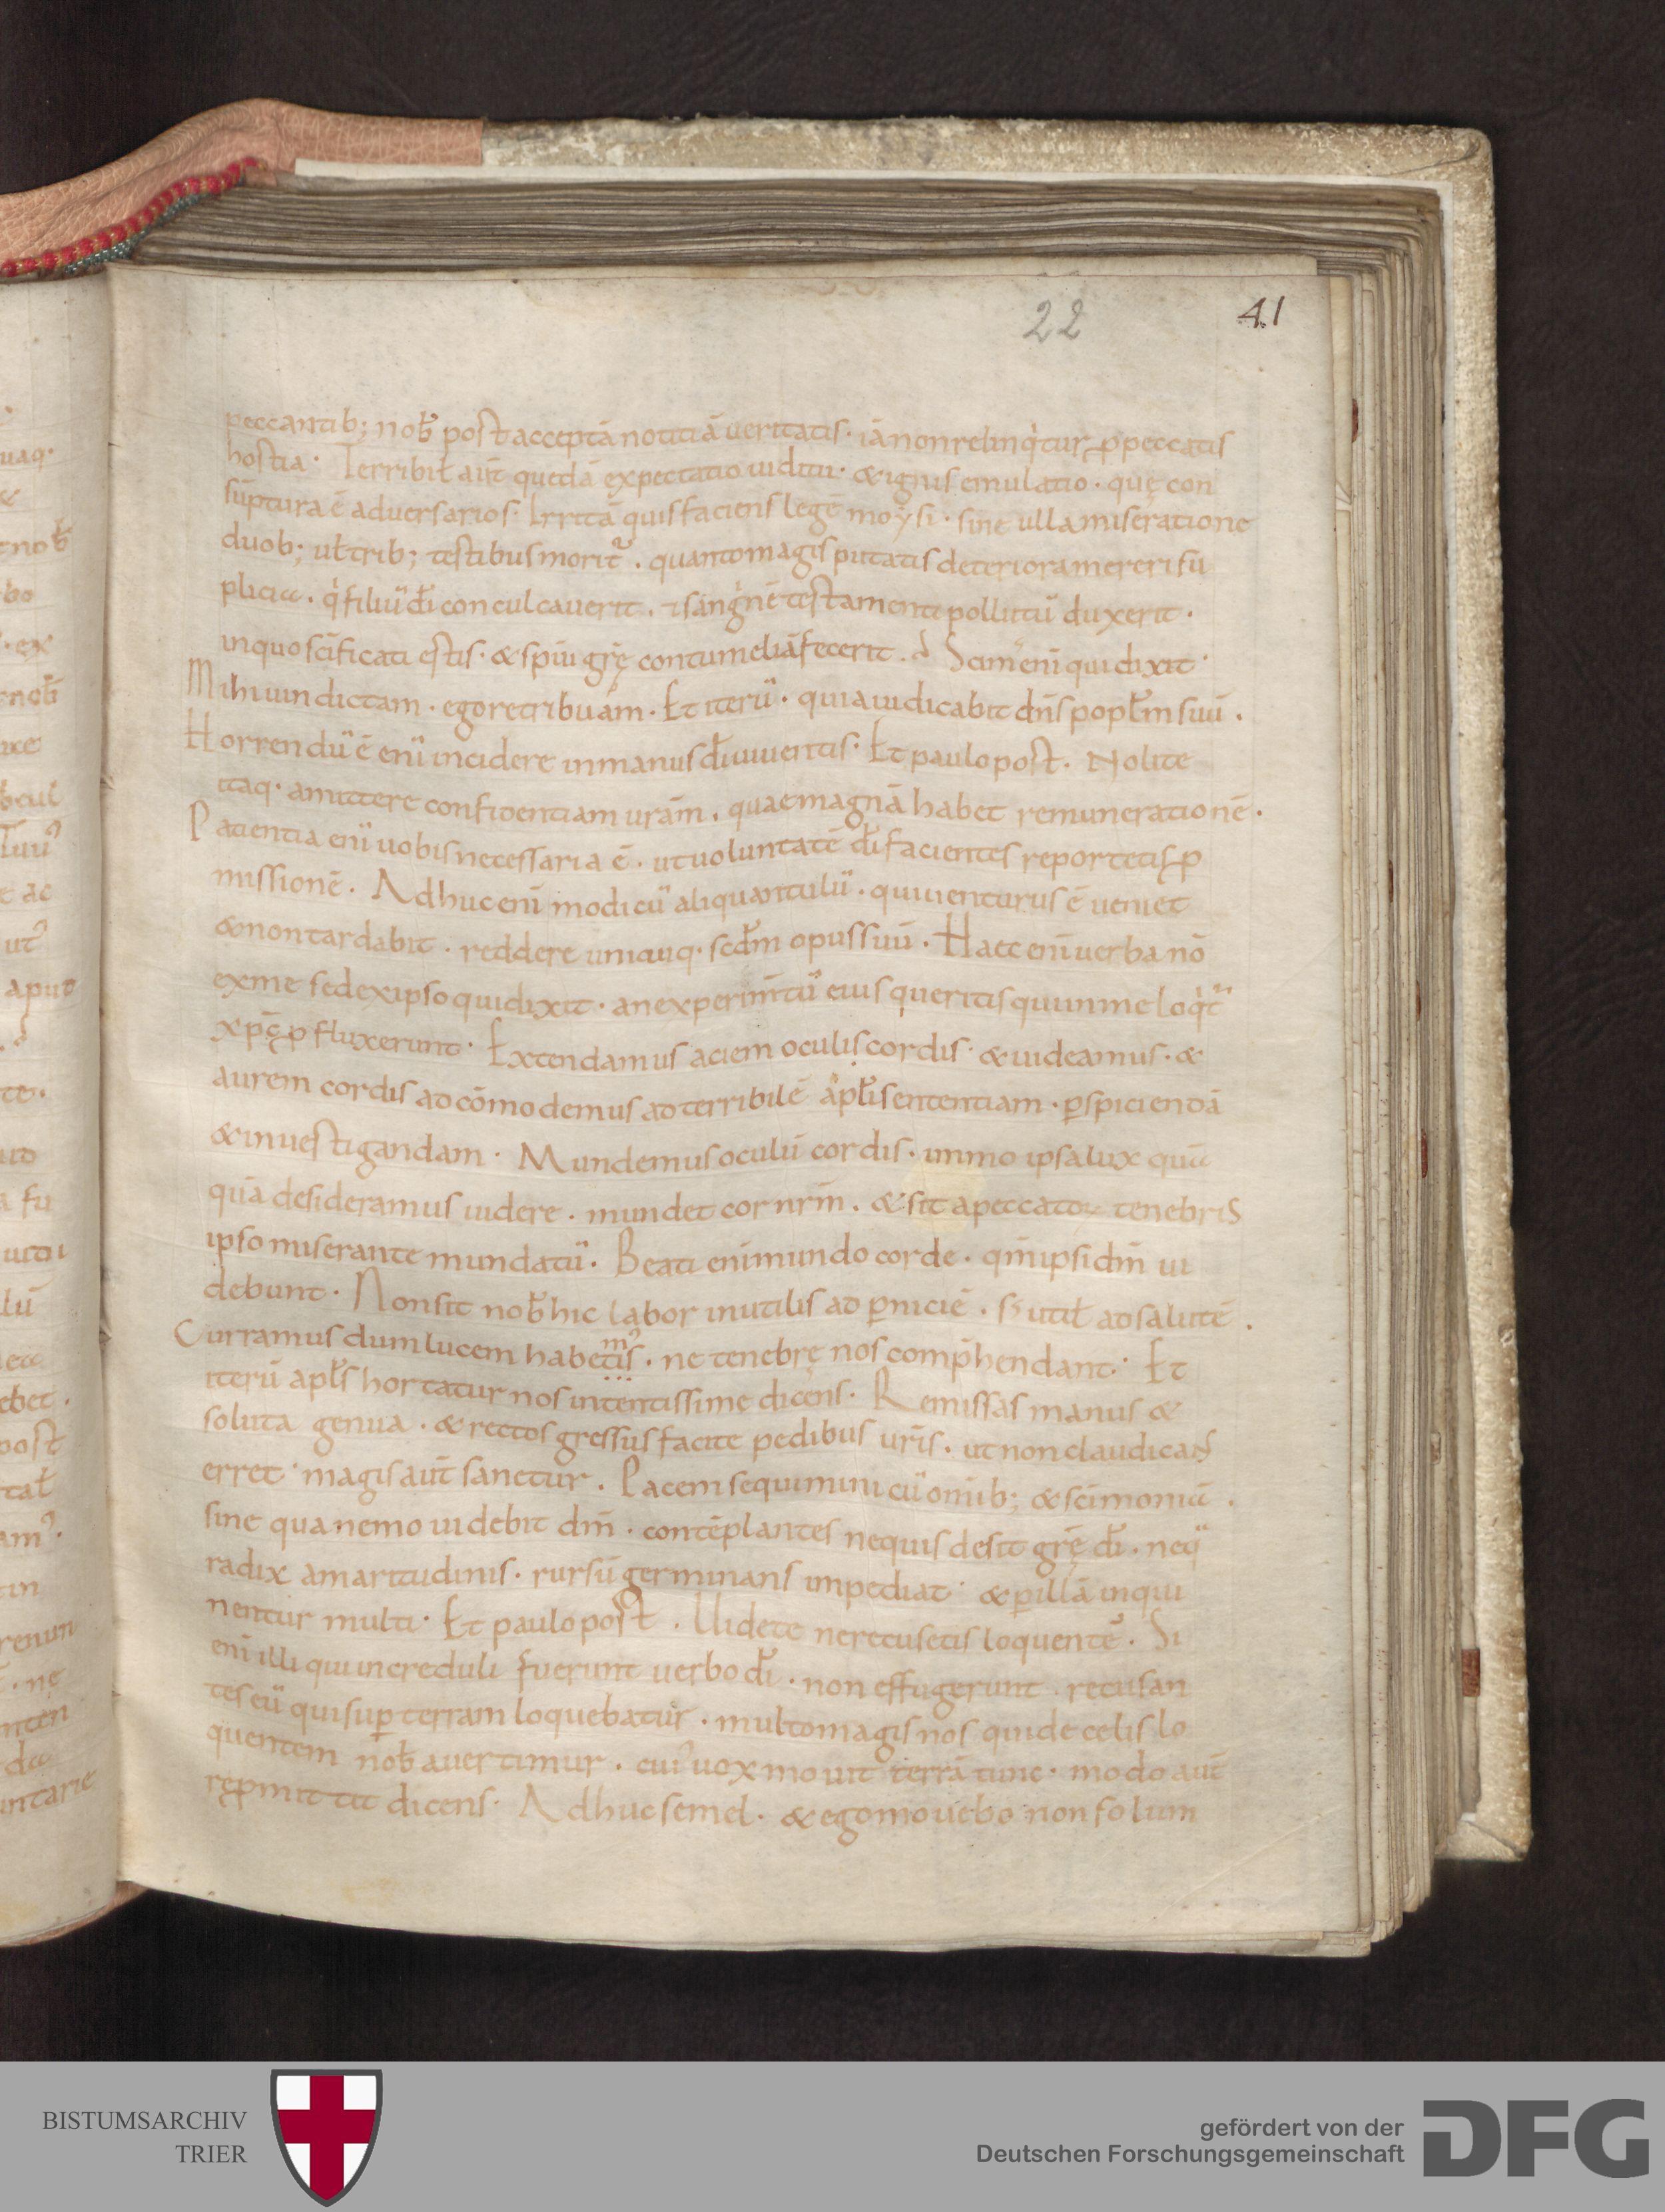 22
41
peccantib; nob̄ post acceptā notitiā veritatis · iā non relinq̇tur ꝓ peccatis
hostia · Terribil̄ aūt quedā expectatio iuditii · & ignis emulatio · quę con
sūptura ē adversarios · Irritā quis faciens legē moysi · sine ulla miseratione
duob; ul̄ trib; testibus morit᷑ . quanto magis putatis deteriora mereri su
plicia . q̇ filiū dī conculcaverit . ⁊ sanġnē testamenti pollutū duxerit .
in quo sc̄ificati estis · & sp̄ui gr̄ę contumeliā fecerit . Scim᾽ enī qui dixit ·
Mihi uindictam · ego retribuam · Et iterū · quia iudicabit dn̄s popl̄m suū .
Horrendū ē enī incidere in manus dī uiuentis · Et paulo post . Nolite
itaq · amittere confidentiam ur̄am . quae magnā habet remunerationē .
Patientia enī uobis necessaria ē . ut uoluntatē dī facientes reportetis ꝓ
missionē . Adhuc enī modicū aliquantulū . qui uenturus ē ueniet
& non tardabit . reddere unicuiq · scd̄m opus suū . Haec enī uerba nō
ex me sed ex ipso qui dixit · an experim̄tū eius queritis qui in me loq̇t᷑
xp̄ę ꝓfluxerunt · Extendamus aciem oculis cordis · & uideamus · &
aurem cordis adcōmodemus ad terribilē apl̄i sententiam · ꝑspiciendā
& inuestigandam · Mundemus oculū cordis . immo ipsa lux quā
quia desideramus uidere . mundet cor nr̄m . & sit a peccatoꝝ tenebris
ipso miserante mundatū . Beati enī mundo corde . qm̄ ipsi dm̄ ui
debunt . Non sit nob̄ hic labor inutilis ad ꝑniciē . s; util̄ ad salutē .
m᾽
Curramus dum lucem habetis . ne tenebrę nos comp̄hendant · Et
iterū apl̄s hortatur nos intentissime dicens · Remissas manus &
soluta genua . & rectos gressus facite pedibus ur̄is . ut non claudicans
erret · magis aūt sanetur . Pacem sequimini cū om̄ib; & sc̄imoniā .
sine qua nemo uidebit dm̄ . contēplantes nequis desit gr̄ę dī . neq̄
radix amaritudinis . rursū germinans impediat · & ꝑ illā inqui
nentur multi · Et paulo post . Uidete ne recusetis loquentē . Si
enī illi qui increduli fuerunt uerbo dī . non effugerunt . recusan
tes eū qui suꝑ terram loquebatur . multo magis nos qui de celis lo
quentem nob̄ auertimur . cui᾽ uox mouit terrā tunc . modo aūt
repmittit dicens · Adhuc semel . & ego mouebo non solum
BISTUMSARCHIV
TRIER
gefördert von der
Deutschen Forschungsgemeinschaft
DFG